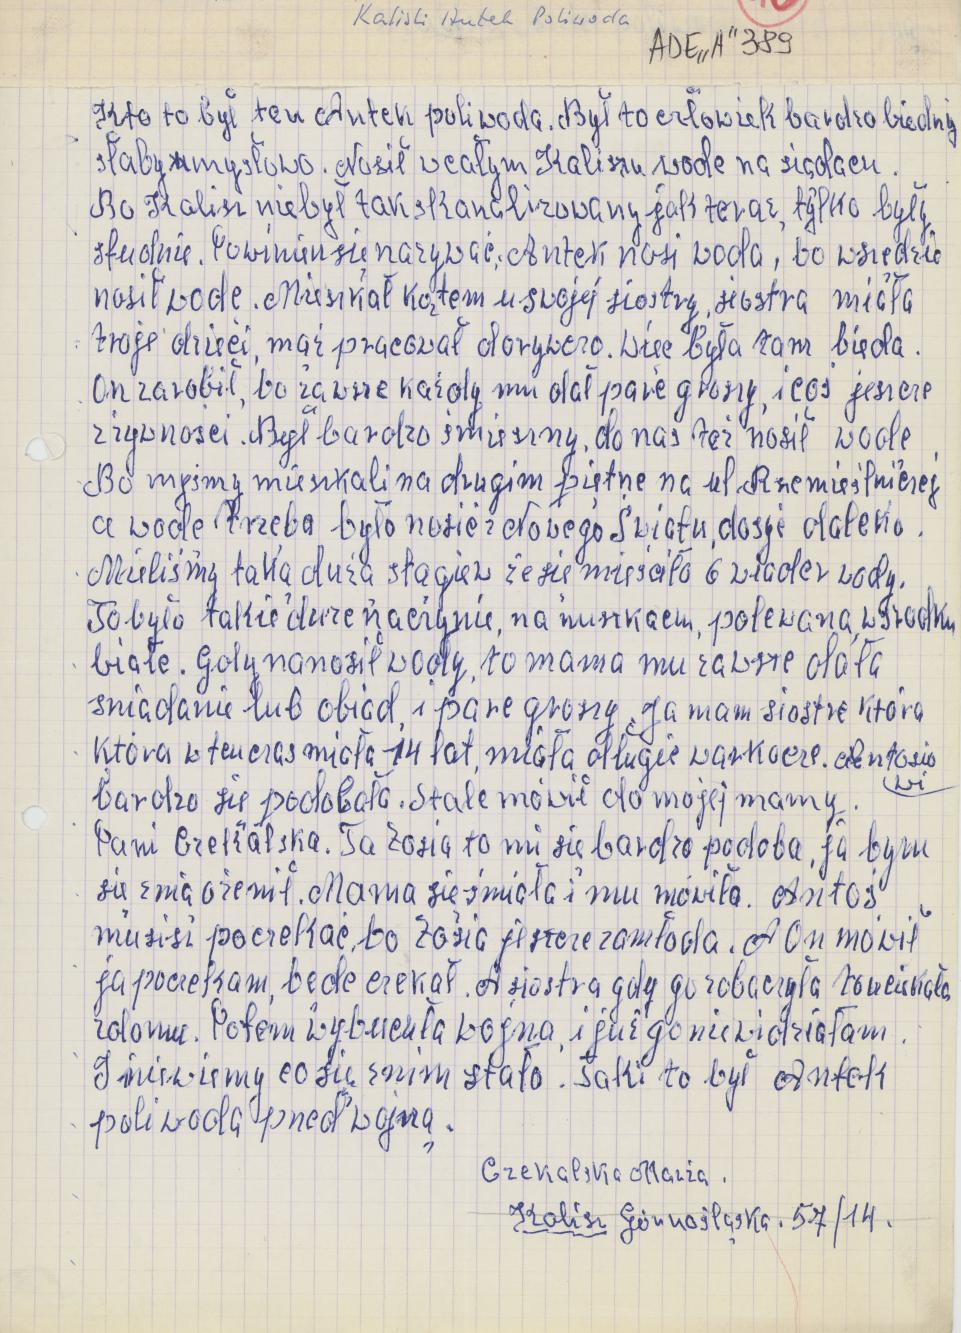 Kaliski Antek Poliwoda
ADE„A" 389
Kto to był ten Antek poliwoda. Był to człowiek bardzo biedny
słaby umysłowo. Nosił w całym Kaliszu wode na siądach.
Bo Kalisz niebył tak skanalizowany jak teraz, tylko były
studnie. Powinien się nazywać, Antek nosi woda, bo wszędzie
nosił wode. Mieszkał kątem u swojej siostry, siostra miała
troje dzieći, mąż pracował dorywczo. Więc była tam bieda.
On zarobił, bo zawsze każdy mu dał pare groszy, i coś jeszcze
z żywności. Był bardzo śmieszny, do nas też nosił wode
Bo myśmy mieszkali na drugim piętrze na ul Rzemieślniczej
a wode trzeba było nosić z Nowego Światu, dosyć daleko.
Mieliśmy taką dużą stągiew że sie mieściło 6 wiader wody.
To było takie duże naczynie, na nuszkach, polewana, w środku
białe. Gdy nanosił wody, to mama mu zawsze dała
śniadanie lub obiad, i pare groszy. Ja mam siostre która
która wtenczas miała 14 lat, miała długie warkocze. Antosio
wi
bardzo się podobała. Stale mówił do mojej mamy.
Pani Czekalska. Ta Zosia to mi się bardzo podoba, ja bym
się z nią ożenił. Mama się śmiała i mu mówiła. Antoś
musisi poczekać, bo Zosia jeszcze zamłoda. A On mówił
ja poczekam, bede czekał. A siostra gdy go zobaczyła to uciekała
z domu. Potem wybuchła wojna, i już go nie widziałam.
I niewiemy co się z nim stało. Taki to był Antek
poliwoda przed wojną.
Czekalska Maria.
Kalisz Górnośląska. 57/14.